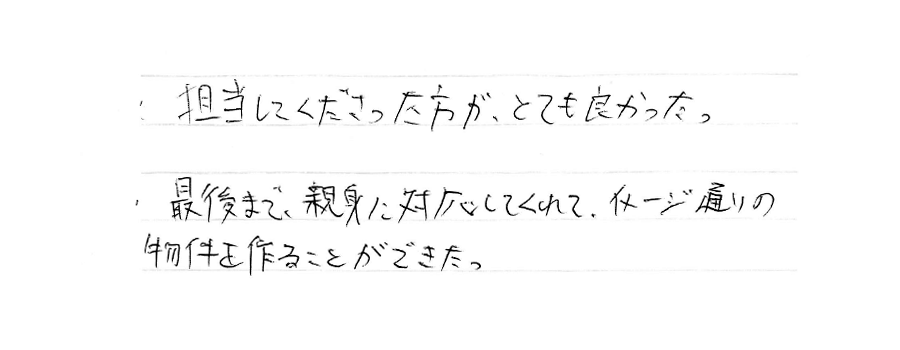 ・担当してくださった方が、とても良かった。
・最後まで、親身に対応してくれて、イメージ通りの
物件を作ることができた。